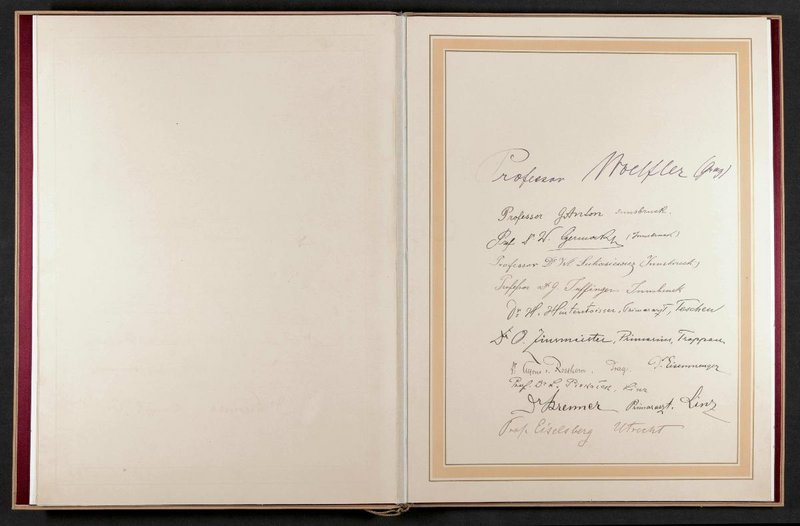 Professor Woelfler (Prag)
Professor G. Anton Innsbruck.
Prof. Dr. W. (Innsbruck)
Professor Dr. Wl. Lukasiewicz (Innsbruck)
Professor Dr. G. Juffinger Innsbruck
Dr. H. Hinterstoisser, Primararzt, Teschen
Dr. O. Zinsmeister, Primarius, Troppau
v. Rosthorn. Prag. Dr. Eisenmenger
Prof. Dr. L. Linz
Dr. Brenner Primararzt. Linz
Prof. Eiselsberg Utrecht